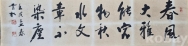 春風
大雅
能容
物秋
水文
章不
染塵